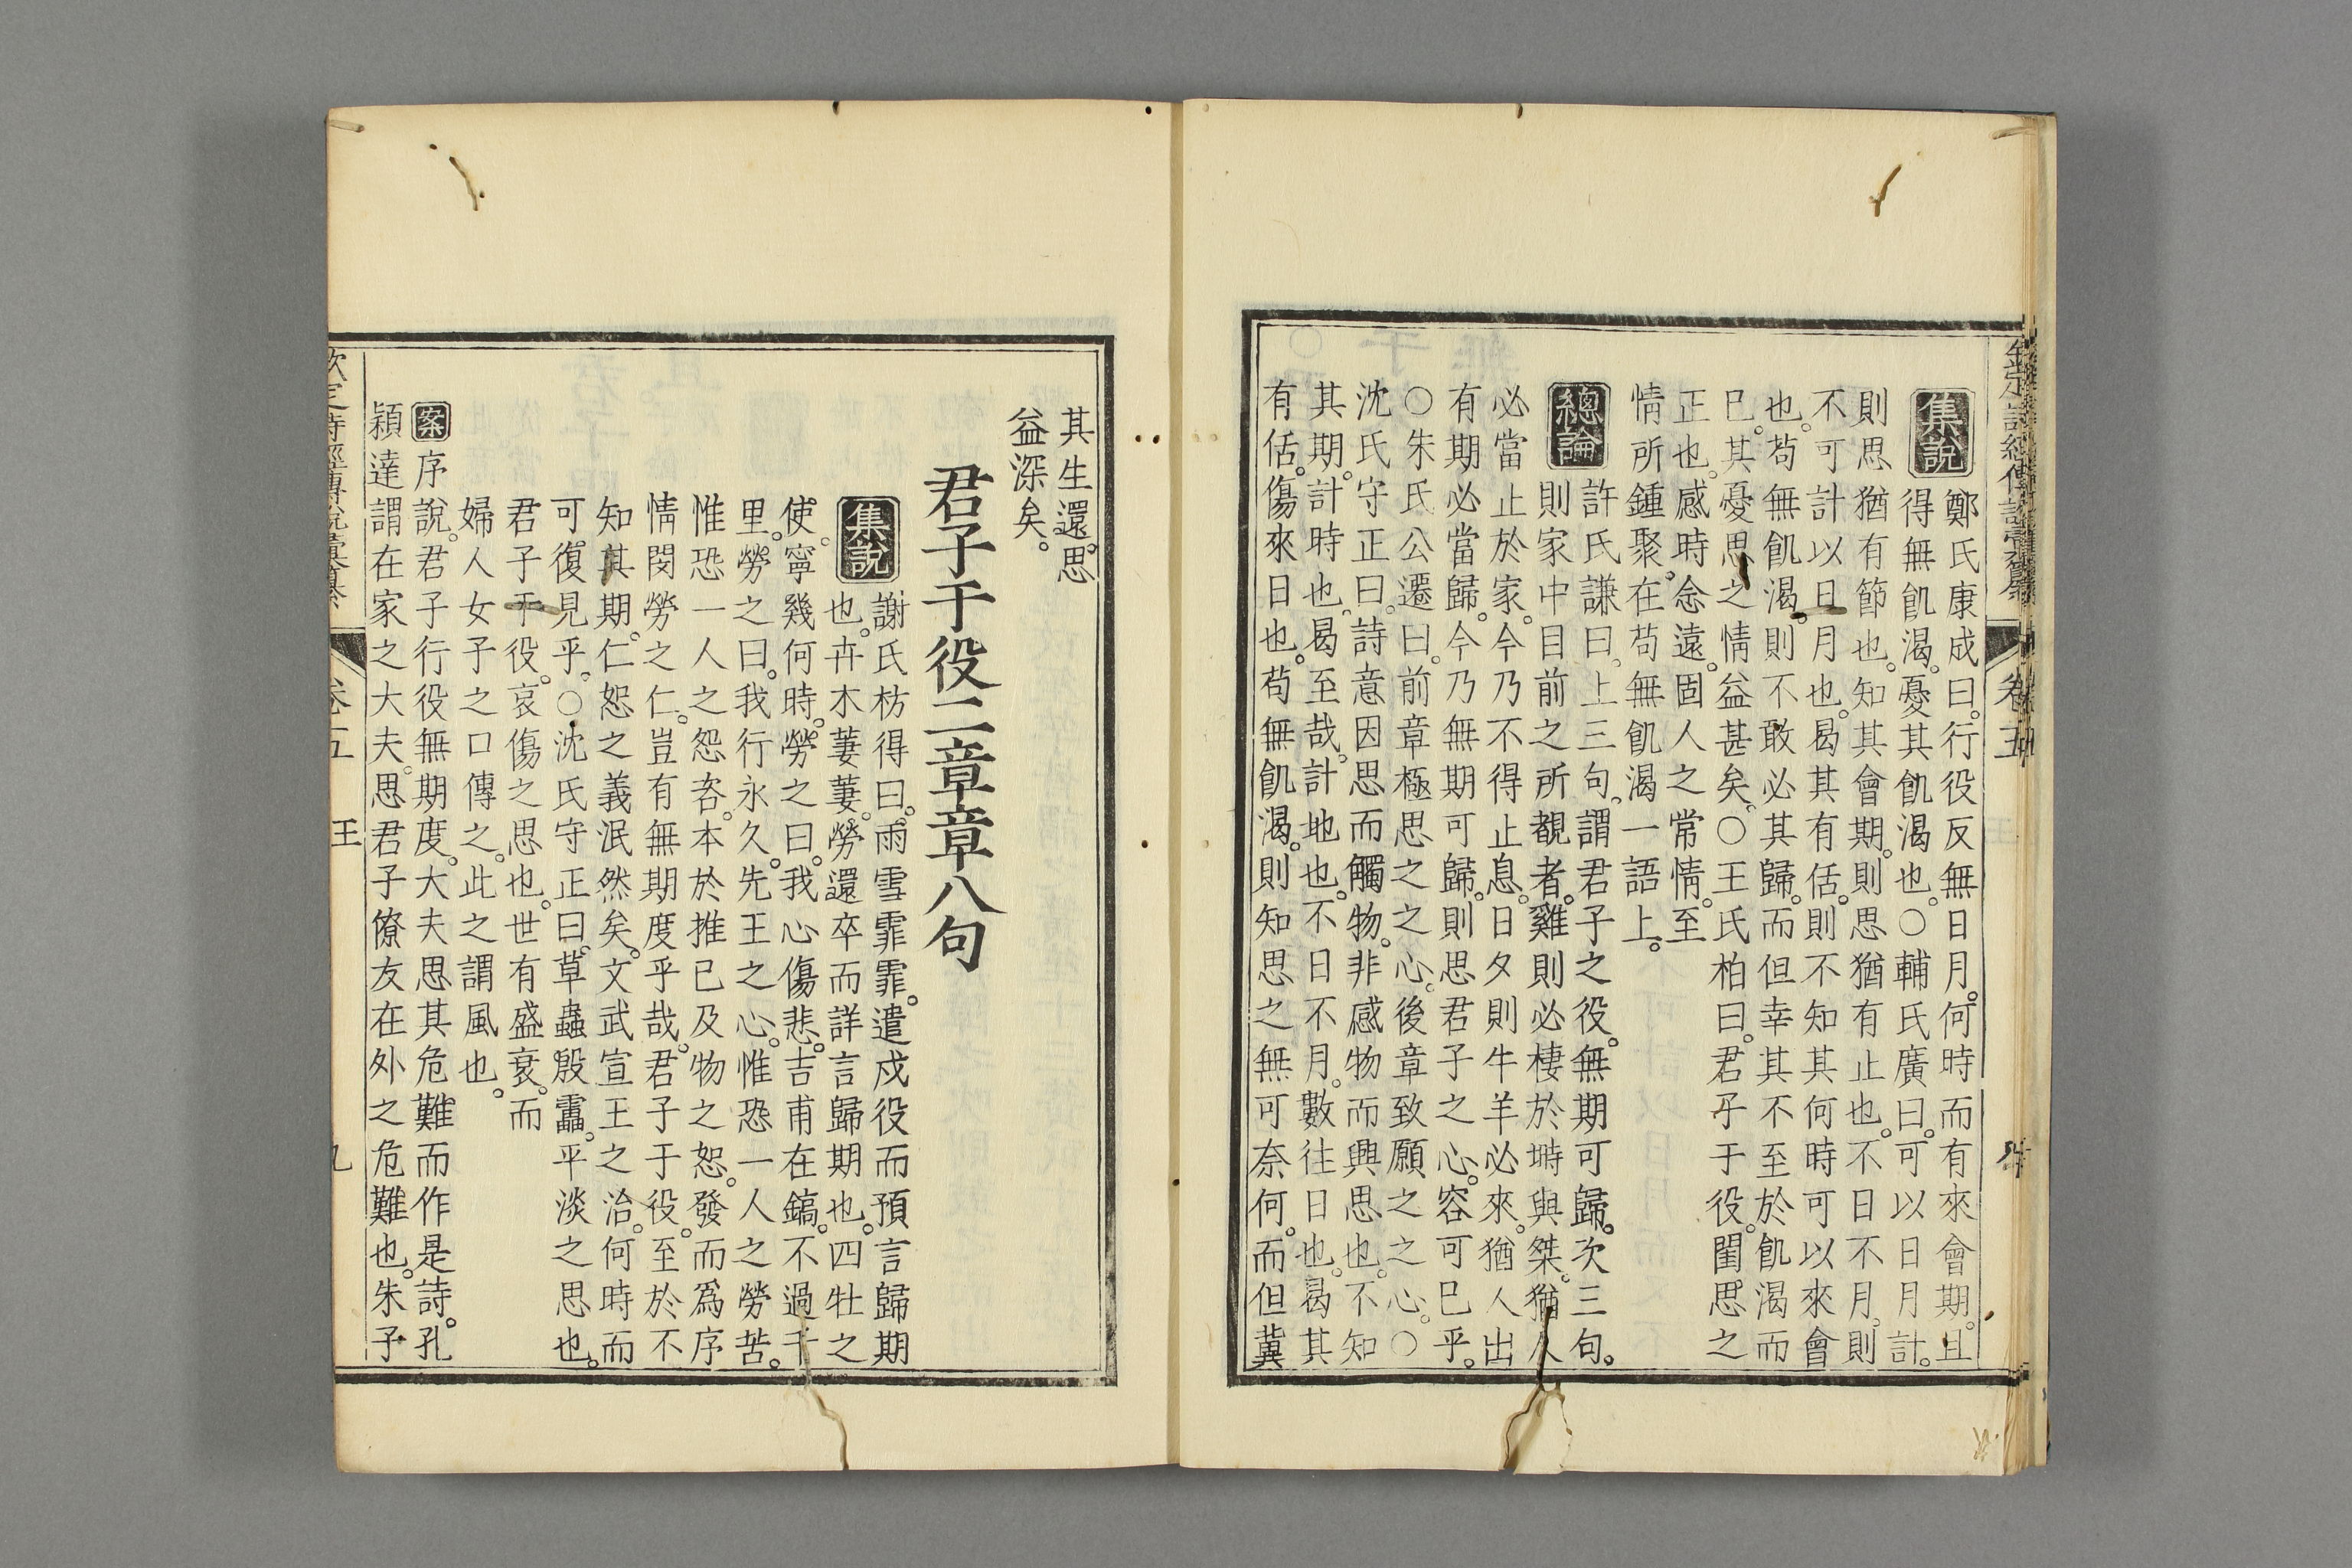 集說
鄭氏康成曰。行役反無日月。何時而有來會期。且
得無飢渴。憂其飢渴也。○輔氏廣曰。可以日月計。
則思猶有節也。知其會期。則思猶有止也。不日不月。則
不可計以日月也。曷其有佸。則不知其何時可以來會
也。苟無飢渴。則不敢必其歸。而但幸其不至於飢渴而
已。其憂思之情益甚矣。○王氏柏曰。君子于役。閨思之
正也。感時念遠。固人之常情。至
情所鍾聚。在苟無飢渴一語上。
總論
許氏謙曰。上三句。謂君子之役。無期可歸。次三句。
則家中目前之所覩者。雞則必棲於塒與桀。猶人
必當止於家。今乃不得止息。日夕則牛羊必來。猶人出
有期必當歸。今乃無期可歸。則思君子之心。容可已乎。
○朱氏公遷曰。前章極思之之心。後章致願之之心。○
沈氏守正曰。詩意因思而觸物。非感物而興思也。不知
其期。計時也。曷至哉。計地也。不日不月。數往日也。曷其
有佸。傷來日也。苟無飢渴。則知思之無可奈何。而但冀
其生還。思
益深矣。
君子于役二章章八句
集說
謝氏枋得曰。雨雪霏霏。遣戍役而預言歸期
也。卉木萋萋。勞還卒而詳言歸期也。四牡之
使。寧幾何時。勞之曰。我心傷悲。吉甫在鎬。不過千
里。勞之曰。我行永久。先王之心。惟恐一人之勞苦。
惟恐一人之怨咨。本於推己及物之恕。發而爲序
情閔勞之仁。豈有無期度乎哉。君子于役。至於不
知其期。仁恕之義泯然矣。文武宣王之治。何時而
可復見乎。○沈氏守正曰。草蟲殷靁。平淡之思也。
君子于役。哀傷之思也。世有盛衰。而
婦人女子之口傳之。此之謂風也。
案序說。君子行役無期度。大夫思其危難而作是詩。孔
穎達謂在家之大夫。思君子僚友在外之危難也。朱子
欽定詩經傳說彙纂
卷五
王
九